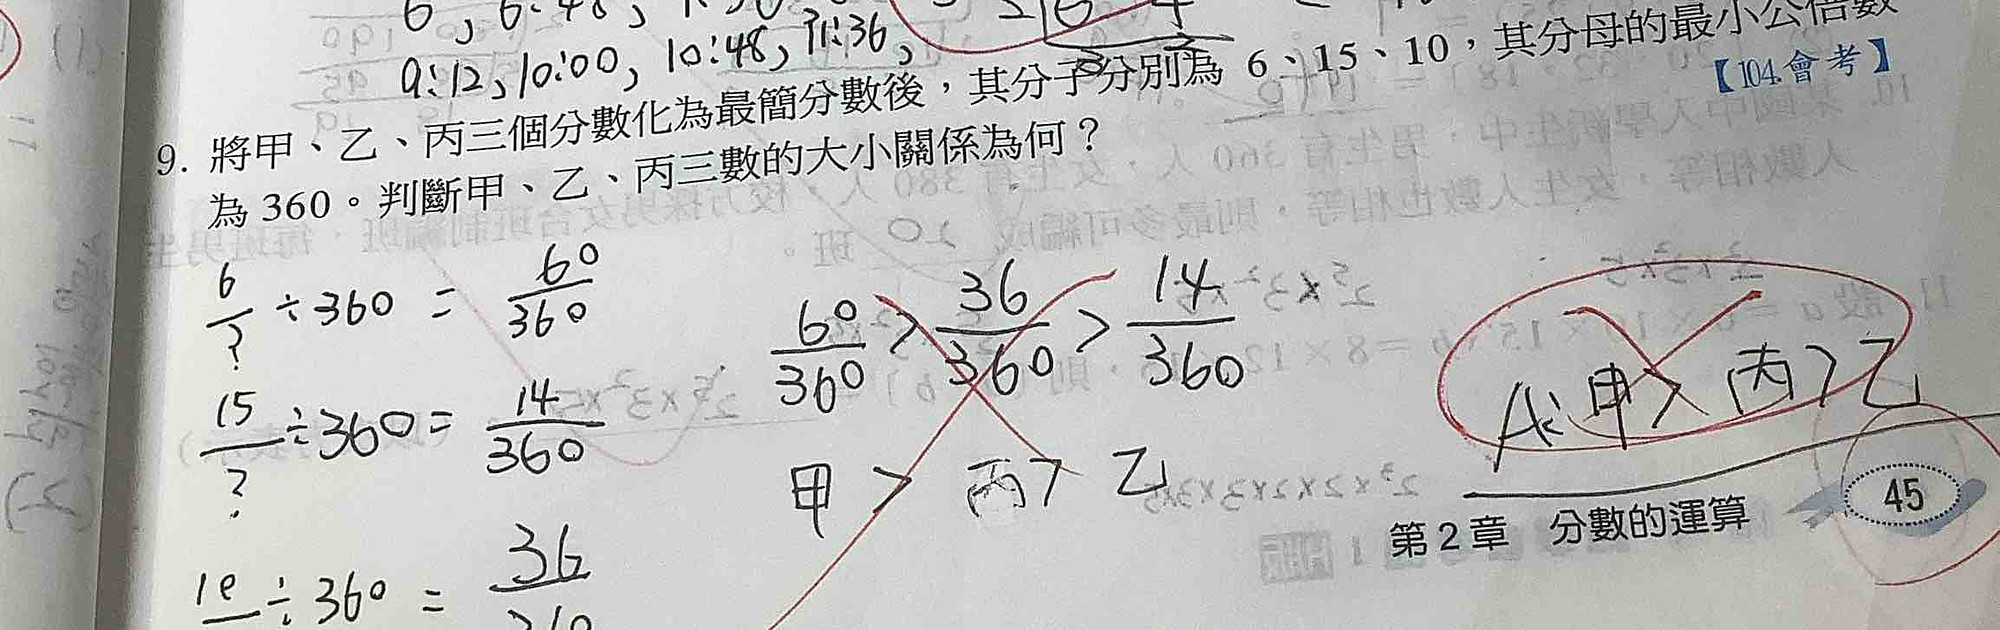 9:12, 10:00, 10:48, 11:36,
9. 將甲、乙、丙三個分數化為最簡分數後，其分子分別為 6、15、10，其分母的最小公倍數
為 360。判斷甲、乙、丙三數的大小關係為何？
【104.會考】
6/? ÷ 360 = 60/360
15/? ÷ 360 = 14/360
10/ ÷ 360 = 36/
60/360 > 36/360 > 14/360
甲 > 丙 > 乙
A: 甲 > 丙 > 乙
第 2 章 分數的運算
45